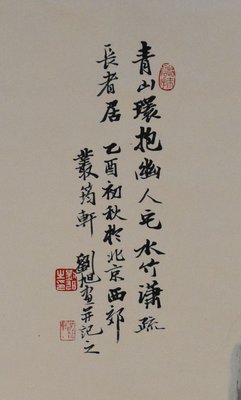 青山環抱幽人宅水竹瀟疏
長者居 乙酉初秋於北京西郊
叢筠軒 劉旭畫并記之